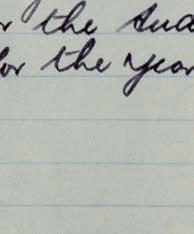 the
for the year